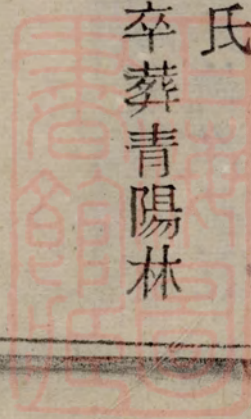 氏
卒葬青陽林